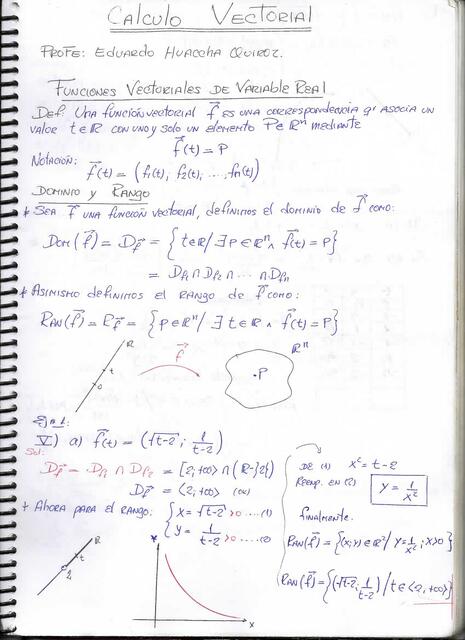 Calculo Vectorial
Profe: Eduardo Huacoha Quiroz.
Funciones Vectoriales de Variable Real
Def: Una función vectorial f⃗ es una correspondencia q' asocia un
valor t∈ℝ con uno y solo un elemento P∈ℝⁿ mediante
f⃗(t) = P
Notación:
f⃗(t) = (f₁(t); f₂(t); ....; fn(t))
Dominio y Rango
* Sea f⃗ una función vectorial, definimos el dominio de f⃗ como:
Dom(f⃗) = Df⃗ = {t∈ℝ/ ∃ P∈ℝⁿ ∧ f⃗(t) = P}
= Df₁ ∩ Df₂ ∩ ... ∩ Dfn
* Asimismo definimos el rango de f⃗ como:
Ran(f⃗) = Rf⃗ = {P∈ℝⁿ/ ∃ t∈ℝ ∧ f⃗(t) = P}
ℝ
t
0
f⃗
ℝⁿ
.P
Ejm1:
V) a) f⃗(t) = (√t-2 ; 1/t-2)
Sol:
Df⃗ = Df₁ ∩ Df₂ = [2;+∞> ∩ (ℝ-{2})
Df⃗ = <2;+∞>
* Ahora para el rango: { x = √t-2 >0 ....(1)
y = 1/t-2 >0 ...(2)
De (1) x² = t-2
Reemp. en (2) y = 1/x²
finalmente.
Ran(f⃗) = {(x;y)∈ℝ²/ y = 1/x² ; x>0}
Ran(f⃗) = {(√t-2; 1/t-2) / t∈<2,+∞>}
ℝ
t
2
Y
X